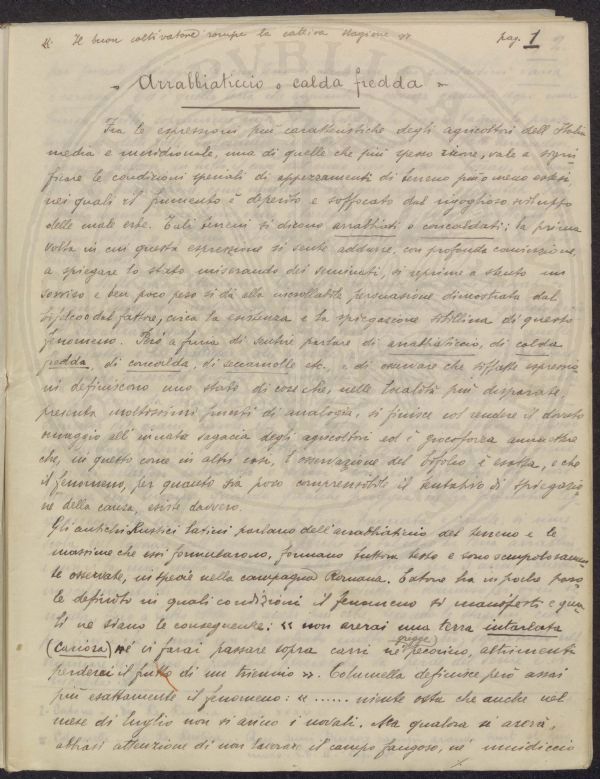 « Il buon coltivatore rompe la cattiva stagione »
pag. 1
Arrabbiaticcio o calda fredda
Fra le espressioni più caratteristiche degli agricoltori dell'Italia
media e meridionale, una di quelle che più spesso ricore, vale a signi
ficare le condizioni speciali di appezzamenti di terreno più o meno estesi,
nei quali il frumento è deperito e soffocato dal rigoglioso sviluppo
delle male erbe. Tali terreni si dicono arrabbiati o concaldati; la prima
volta in cui questa espressione si sente addurre, con profonda convinzione,
a spiegare lo stato miserando dei seminati, si reprime a stento un
sorriso e ben poco peso si dà alla incrollabile persuasione dimostrata dal
bifolco o dal fattore, circa la esistenza e la spiegazione sibillina di questo
fenomeno. Però a furia di sentire parlare di arrabbiaticcio, di calda
fredda, di concalda, di seccamolle etc. e di osservare che siffatte espressio
ni definiscono uno stato di cose che, nelle località più disparate,
presenta moltissimi punti di analogia, si finisce col rendere il dovuto
omaggio all'innata sagacia degli agricoltori ed è giocoforza ammettere
che, in questo come in altri casi, l'osservazione del bifolco è esatta, e che
il fenomeno, per quanto sia poco comprensibile il tentativo di spiegazio
ne della causa, esiste davvero.
Gli antichi Rustici latini parlano dell'arrabbiaticcio del terreno e le
massime che essi formularono, formano tuttora testo e sono scrupolosamen
te osservate, in specie nella campagna Romana. Catone ha in poche paro
le definito in quali condizioni il fenomeno si manifesti e qua
li ne siano le conseguenze: « non arerai una terra intarlata
(cariosa) nè vi farai passare sopra carri nè gregge pecorino, altrimenti
perderai il frutto di un triennio ». Columella definisce però assai
più esattamente il fenomeno: « ...... niente osta che anche nel
mese di luglio non si arino i novali. Ma qualora si arerà,
abbiasi attenzione di non lavorare il campo fangoso, nè umidiccio